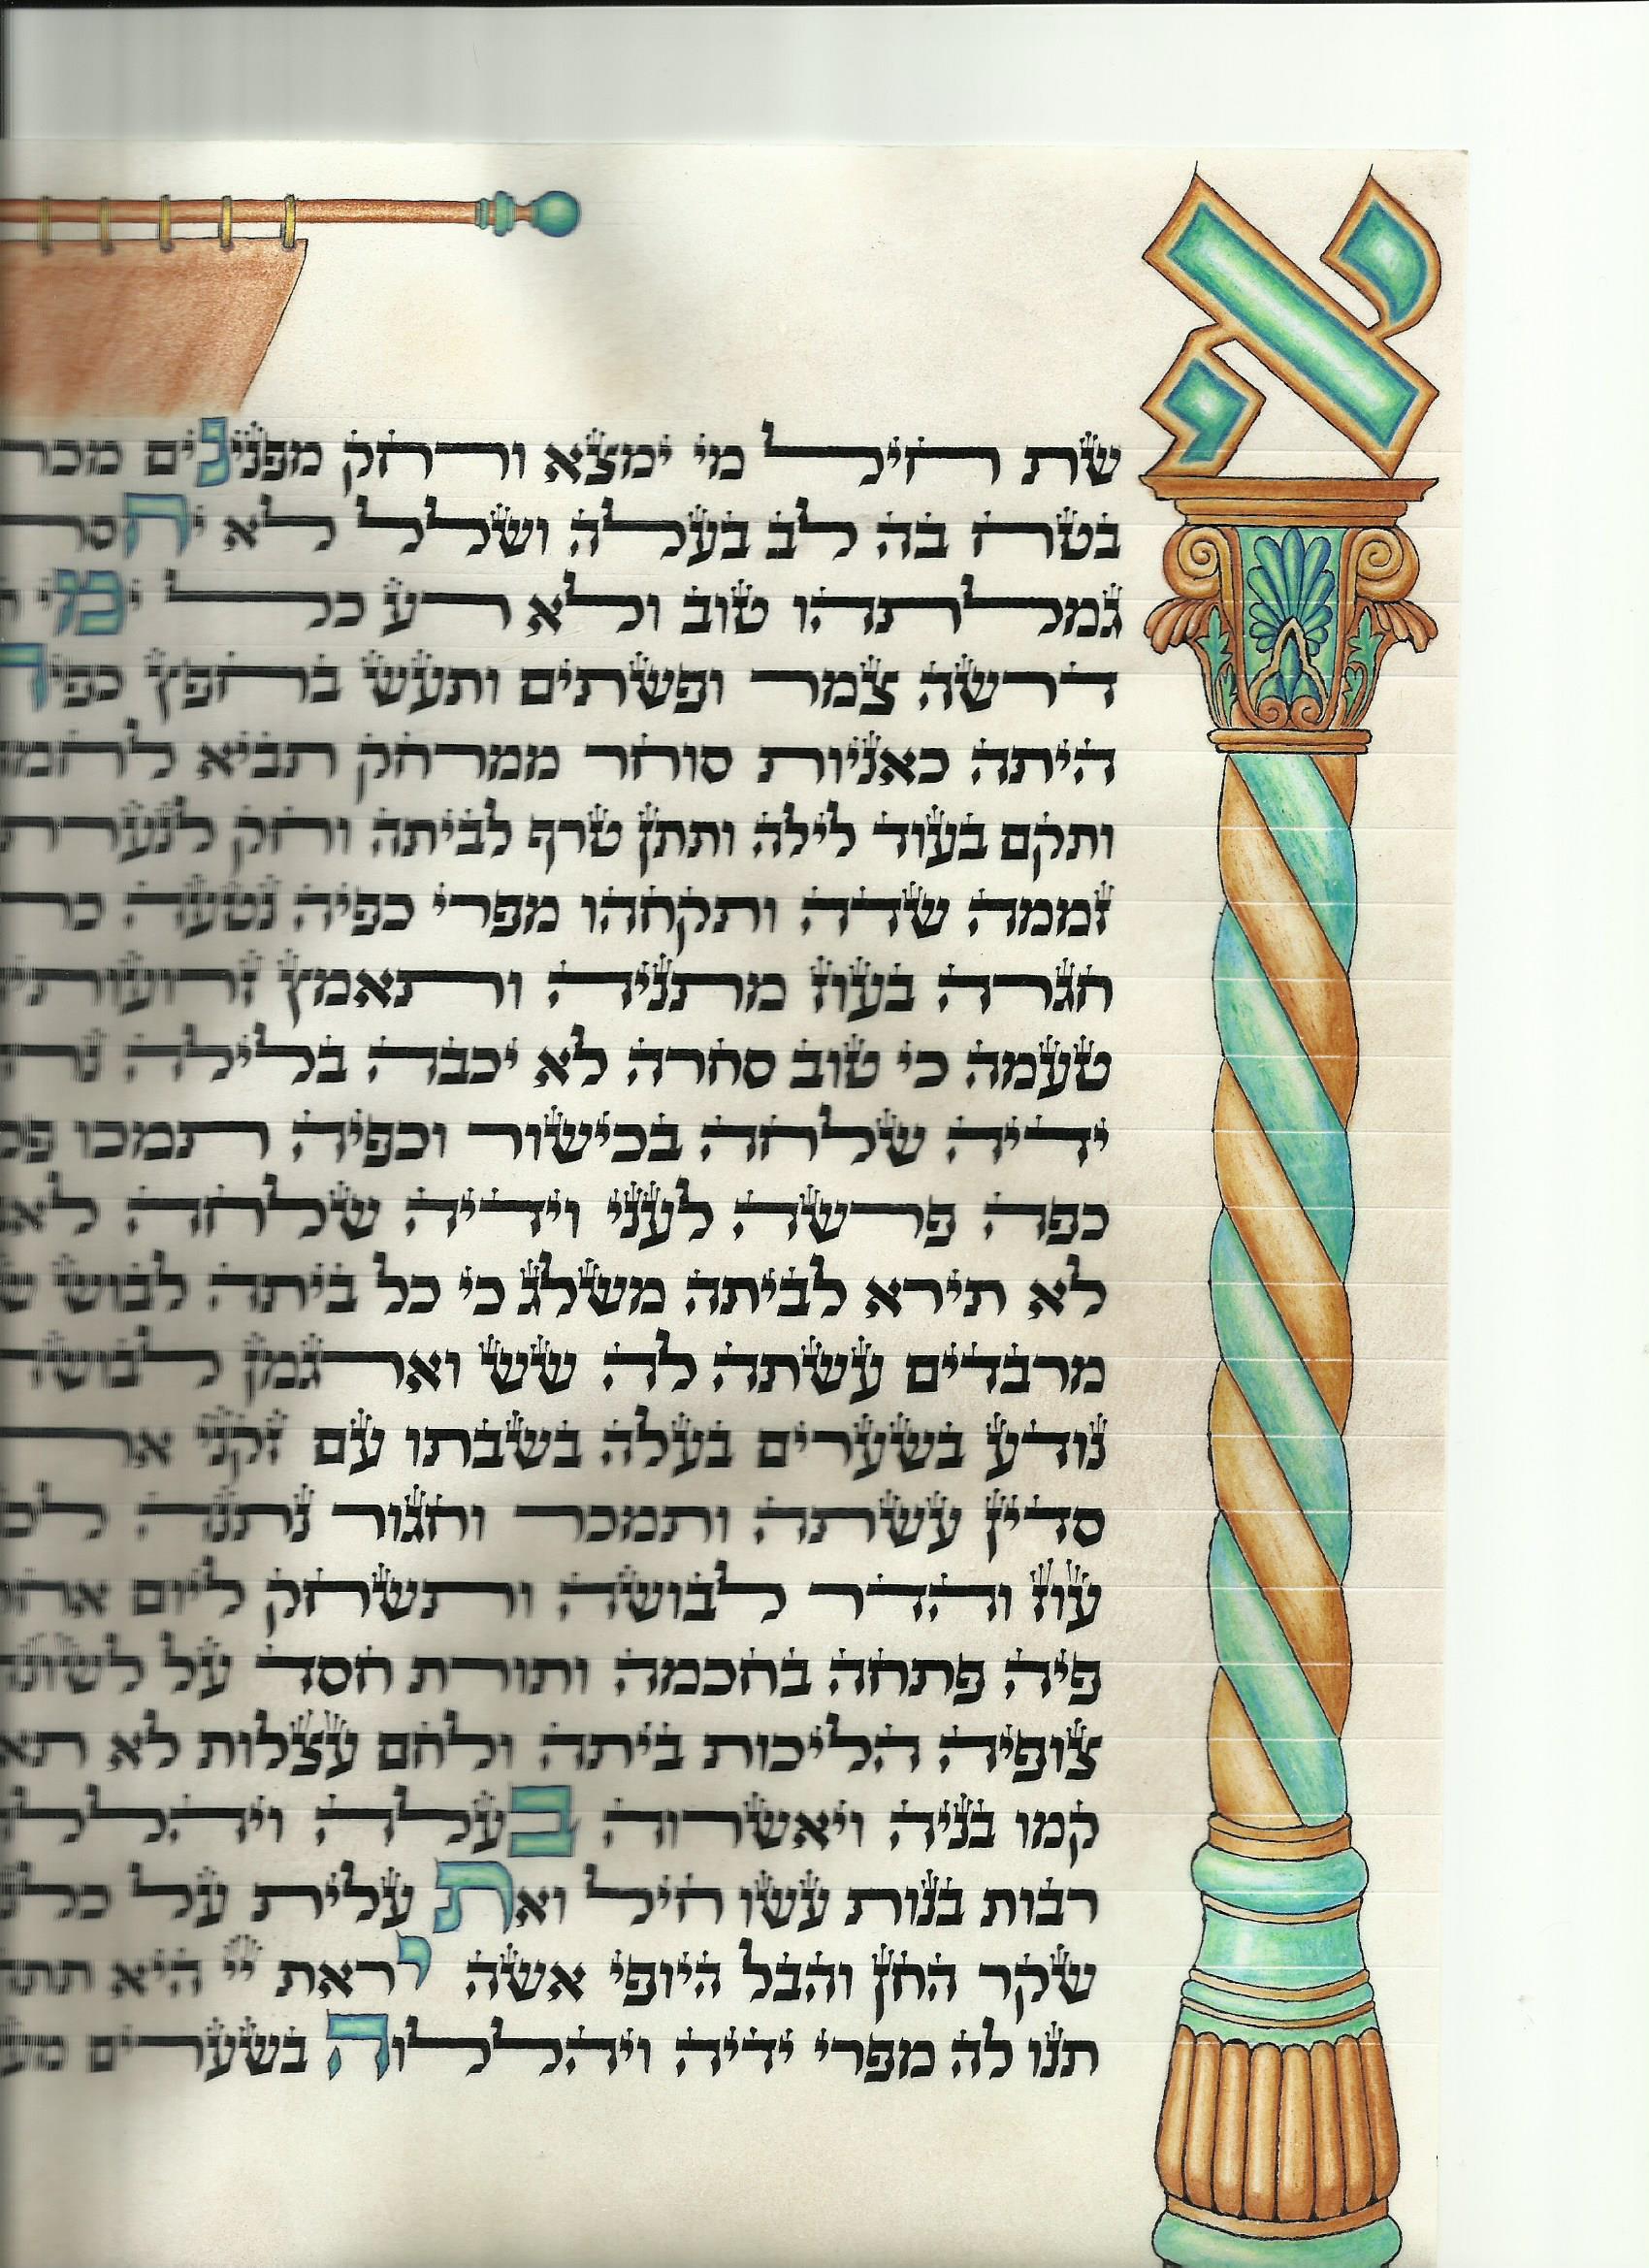 א
שת חיל מי ימצא ורחק מפנינים
בטח בה לב בעלה ושלל לא יחסר
גמלתהו טוב ולא רע כל ימי
דרשה צמר ופשתים ותעש בחפץ
היתה כאניות סוחר ממרחק תביא
ותקם בעוד לילה ותתן טרף לביתה וחק
זממה שדה ותקחהו מפרי כפיה נטעה
חגרה בעוז מתניה ותאמץ
טעמה כי טוב סחרה לא יכבה בלילה
ידיה שלחה בכישור וכפיה תמכו
כפה פרשה לעני וידיה שלחה
לא תירא לביתה משלג כי כל ביתה לבוש
מרבדים עשתה לה שש וארגמן
נודע בשערים בעלה בשבתו עם זקני
סדין עשתה ותמכר וחגור נתנה
עוז והדר לבושה ותשחק ליום
פיה פתחה בחכמה ותורת חסד על
צופיה הליכות ביתה ולחם עצלות לא
קמו בניה ויאשרוה בעלה
רבות בנות עשו חיל ואת עלית על
שקר החן והבל היופי אשה יראת יי היא
תנו לה מפרי ידיה ויהללוה בשערים